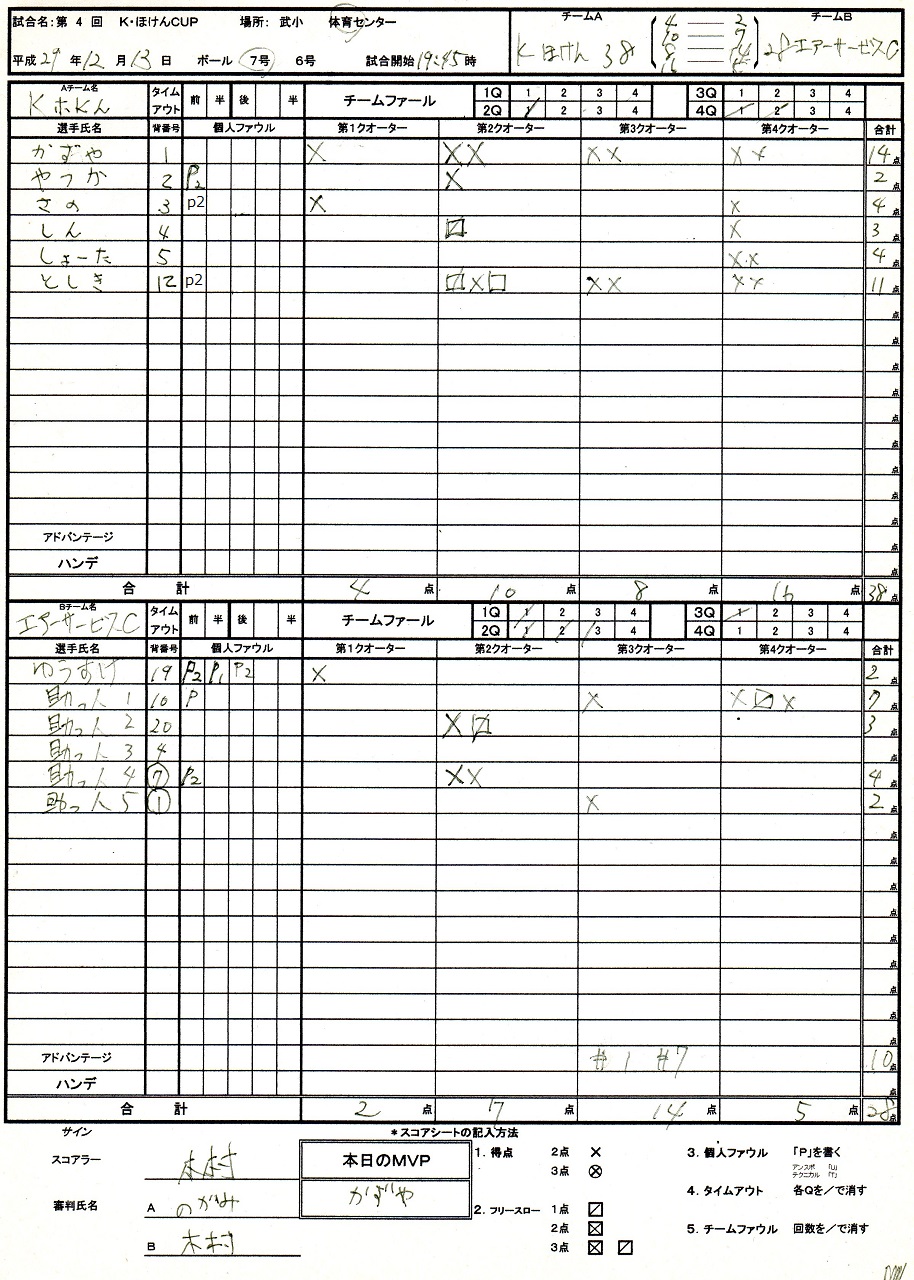 試合名:第 4 回 K・ほけんCUP 場所: 武小 体育センター
平成 29 年 12 月 13 日 ボール 7号 6号 試合開始 19:45 時
チームA チームB
Kほけん 38 28 エアーサービスC
4 — 2
10 — 7
8 — 14
16 — 5
Aチーム名 タイムアウト 前 半 後 半 チームファール 1Q 1 2 3 4 3Q 1 2 3 4
KホKん 2Q 1 2 3 4 4Q 1 2 3 4
選手氏名 背番号 個人ファウル 第1クオーター 第2クオーター 第3クオーター 第4クオーター 合計
かずや 1 X XX XX XX 14点
やつか 2 P2 X 2点
さの 3 p2 X X 4点
しん 4 〼 X 3点
しょーた 5 XX 4点
としき 12 p2 〼X□ XX XX 11点
点
点
点
点
点
点
点
点
点
アドバンテージ 点
ハンデ 点
合 計 4点 10点 8点 16点 38点
Bチーム名 タイムアウト 前 半 後 半 チームファール 1Q 1 2 3 4 3Q 1 2 3 4
エアーサービスC 2Q 1 2 3 4 4Q 1 2 3 4
選手氏名 背番号 個人ファウル 第1クオーター 第2クオーター 第3クオーター 第4クオーター 合計
ゆうすけ 19 P2 P1 P2 X 2点
助っ人1 10 P X X〼X 7点
助っ人2 20 X〼 3点
助っ人3 4 点
助っ人4 7 P2 XX 4点
助っ人5 1 X 2点
点
点
点
点
点
点
点
点
点
アドバンテージ #1 #7 10点
ハンデ 点
合 計 2点 7点 14点 5点 28点
サイン
スコアラー 木村
審判氏名 A のがみ
B 木村
本日のMVP
かずや
*スコアシートの記入方法
1. 得点 2点 ×
3点 ⊗
2. フリースロー 1点 〼
2点 ☒
3点 ☒ 〼
3. 個人ファウル 「P」を書く
アンスポ 「U」
テクニカル 「T」
4. タイムアウト 各Qを/で消す
5. チームファウル 回数を/で消す